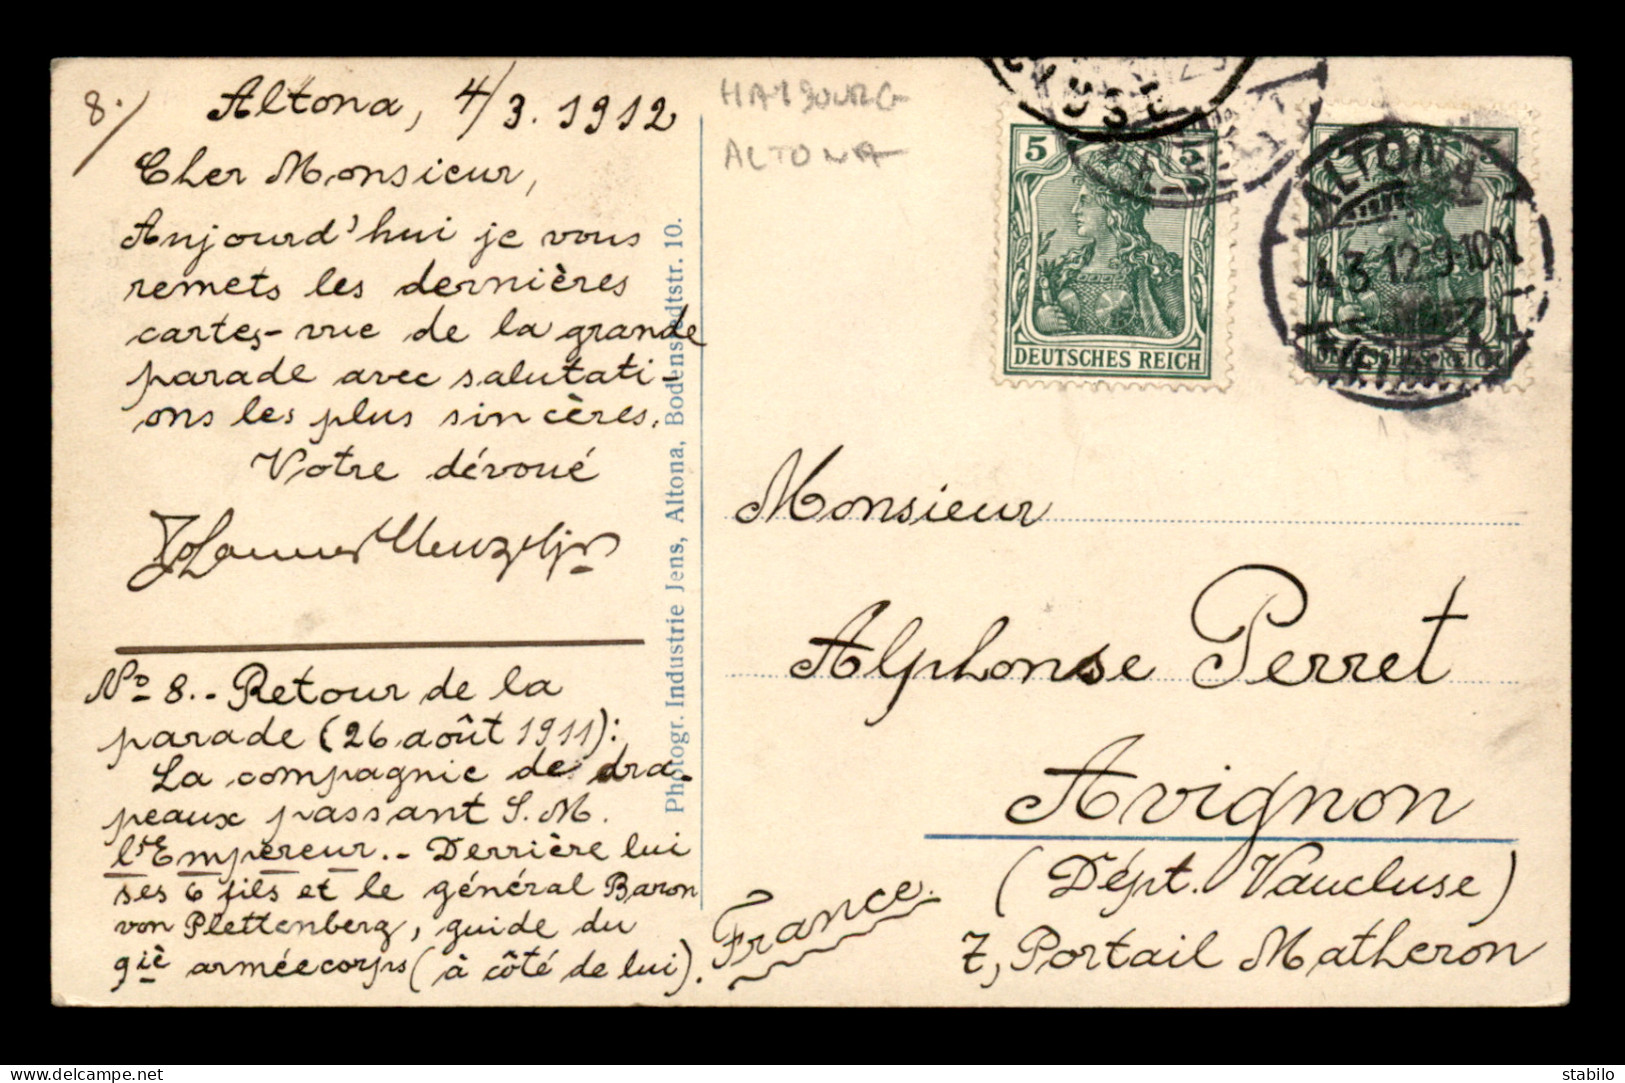 8./
Altona, 4/3. 1912
Cher Monsieur,
Aujourd'hui je vous
remets les dernières
cartes-vue de la grande
parade avec salutati-
ons les plus sincères.
Votre dévoué
Johannes
No 8.- Retour de la
parade (26 août 1911):
La compagnie de dra-
peaux passant S. M.
l'Empereur.- Derrière lui
ses 6 fils et le général Baron
von Plettenberg, guide du
9iè armeécorps (à côté de lui).
Photogr. Industrie Jens, Altona, Bodenstedtstr. 10.
HAMBOURG
ALTONA
5
DEUTSCHES REICH
5
DEUTSCHES REICH
ALTONA
4.3.12.9-10N
VAUCLUSE
Monsieur
Alphonse Perret
Avignon
(Dépt. Vaucluse)
7, Portail Matheron
France.
delcampe.net
stabilo